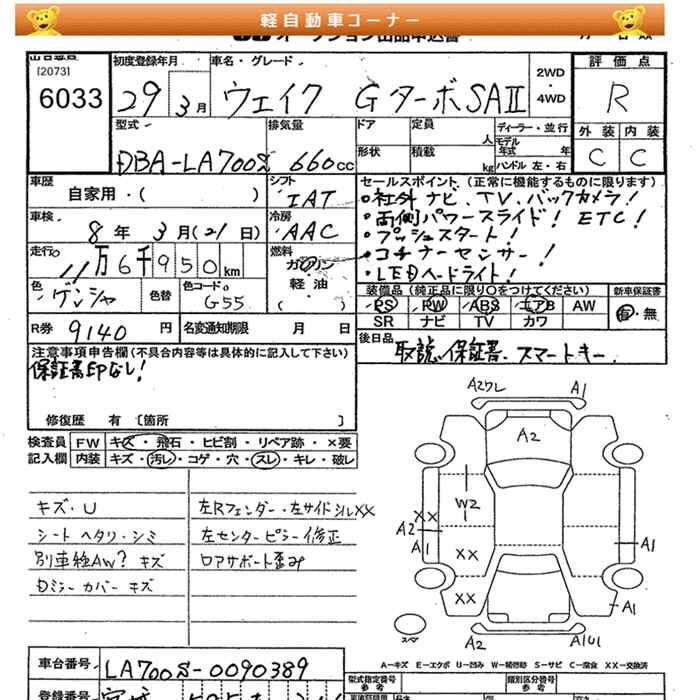 軽自動車コーナー
オークション出品申込書
出品番号
[2073]
6033
初度登録年月
29 3月
車名・グレード
ウェイク GターボSAⅡ
2WD
・
4WD
評価点
R
外装 内装
C C
型式
DBA-LA700S
排気量
660cc
ドア
定員
人
形状
積載
kg
ディーラー・並行
モデル年式 年
ハンドル 左・右
車歴
自家用・( )
シフト
IAT
セールスポイント (正常に機能するものに限ります)
・社外ナビ、TV、バックカメラ!
・両側パワースライド! ETC!
・プッシュスタート!
・コーナーセンサー!
・LEDヘッドライト!
車検
8年 3月(21日)
冷房
AAC
走行
11万6千950km
燃料
ガソリン
・
軽・油
・
色
ゲンシャ
色替
色コード
G55
装備品(純正品に限り○をつけてください)
PS PW ABS エアB AW
SR ナビ TV カワ
新車保証書
有・無
R券 9140 円
名変通知期限 月 日
後日品
取説、保証書、スマートキー
注意事項申告欄(不具合内容等は具体的に記入して下さい)
保証書印なし!
修復歴 有 [箇所 ]
検査員記入欄
FW キズ・飛石・ヒビ割・リペア跡・×要
内装 キズ・汚レ・コゲ・穴・スレ・キレ・破レ
キズ・U
シート ヘタリ・シミ
別車種AW? キズ
Dミラーカバー キズ
左Rフェンダー・左サイドシルXX
左センターピラー修正
ロアサポート歪み
A2ワレ A1
A2
W2
XX
A2
A1
XX
XX
A1
A1
スペア
A2 A1U1
A=キズ E=エクボ U=凹み W=補修跡 S=サビ C=腐食 XX=交換済
車台番号 LA700S-0090389
型式指定番号
参考
類別区分番号
参考
登録番号